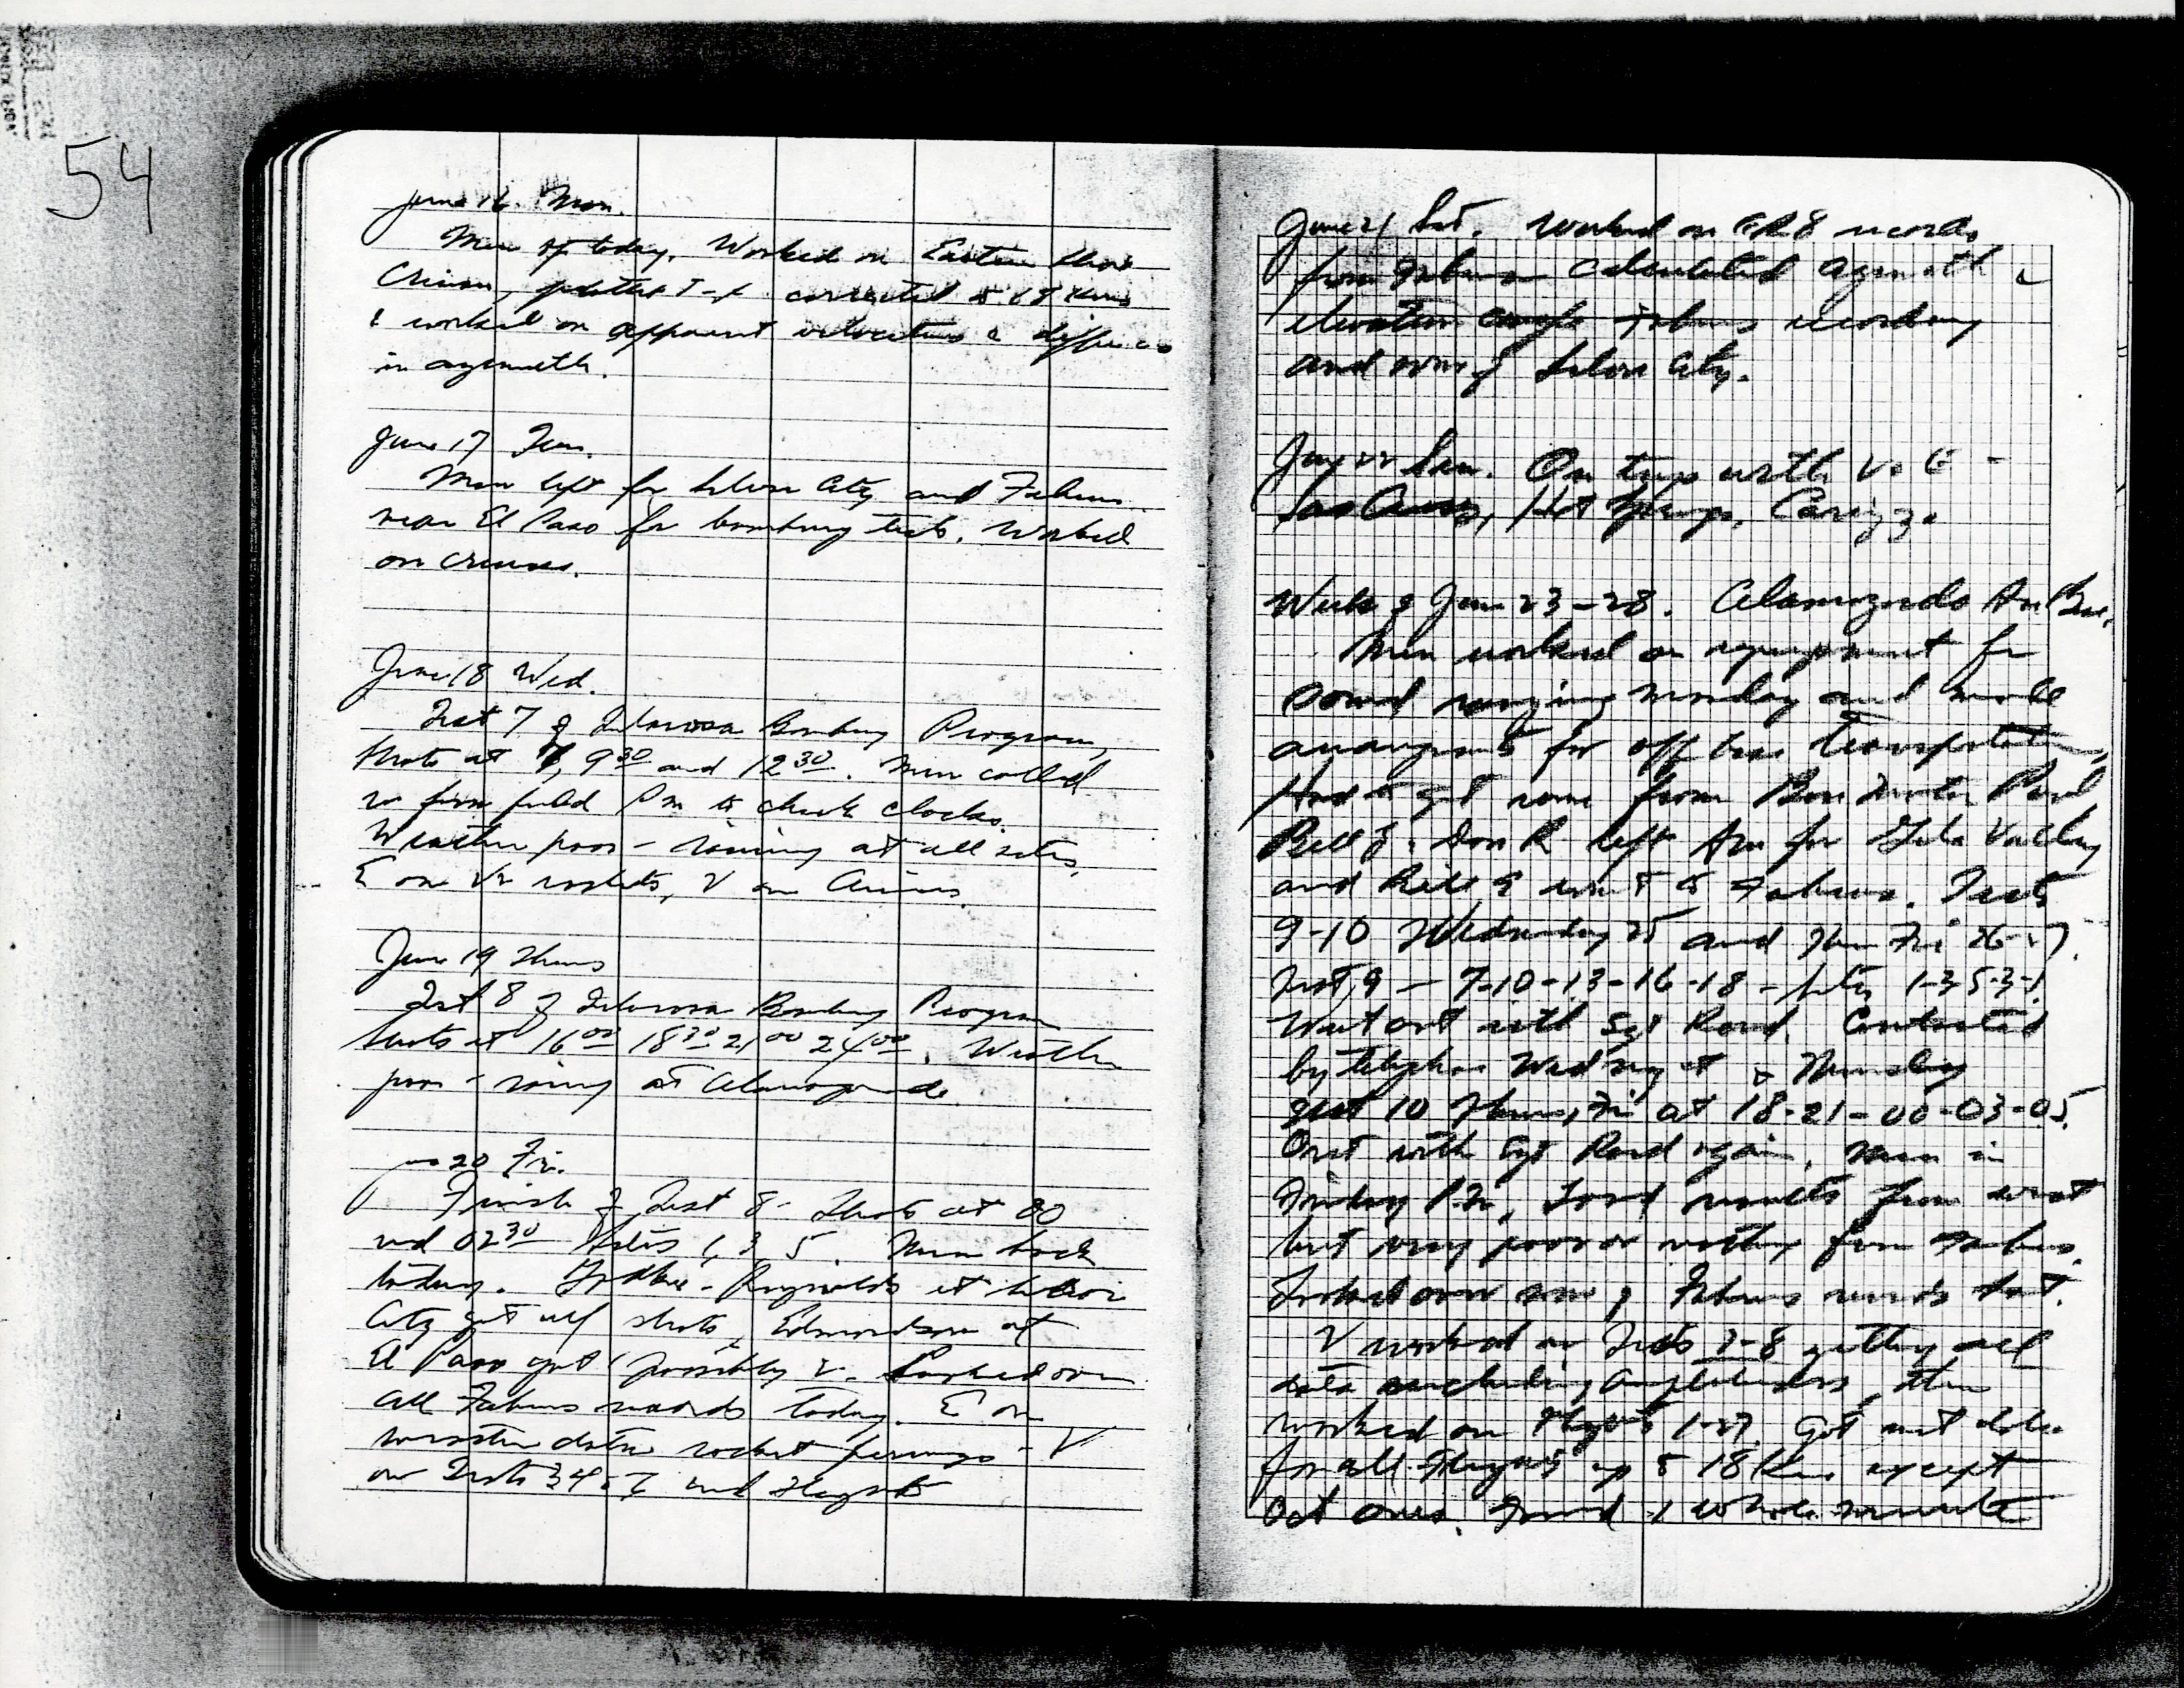 54
June 16 Mon.
Men off today. Worked on Eastern shore
Crimon, plotted T-X corrected to 17 Kms
& worked on apparent velocities & differences
in azimuth.
June 17 Tues.
Men left for Silver City and Fabens
near El Paso for bombing tests. Worked
on
June 18 Wed.
Test 7 of Tularosa Bombing Program,
Shots at 7, 9 30 and 12 30. Men called
in from field PM to check clocks.
Weather poor - raining at all sites.
E on V2 rockets, V on
June 19 Thurs
Test 8 of Tularosa Bombing Program
Shots at 16 00 18 30 21 00 24 00. Weather
poor - raining at Alamogordo.
June 20 Fri.
Finish of Test 8 - Shots at 00
and 02 30 Sites 1, 3, 5. Men back
today. Reynolds at Silver
City got all shots, Edmondson at
El Paso got 1 possibly 2. Looked over
all Fabens records today. E on
rocket firings - V
on Tests 3 4 & 7 and Flights
June 21 Sat. Worked on GR8 records
from Fabens calculated azimuth &
elevation angle Fabens recording
and some of Silver City.
June 22 Sun. On trip with V & E -
Las Cruces, Hot Springs, Carizzo
Week of June 23-28. Alamogordo Air Base.
Men worked on equipment for
sound ranging Monday and made
arrangements for off base transportation,
Had to get some from Paul
Bill G. Don R left Am for Gila Valley
and Bill E went to Fabens. Tests
9-10 Wednesday 25 and Thur Fri 26-27.
Test 9 - 7-10-13-16-18 - Sites 1-3-5-3-1.
Went out with Sgt Rood. Contacted
by telephone Wed night & Thursday
Test 10 Thurs, Fri at 18-21-00-03-05.
Out with Sgt Rood again. Men in
Friday P.M. Good results from west
but very poor or nothing from Fabens.
Looked over some of Fabens records Sat.
V worked on Tests 2-8 getting all
data including amplitudes, then
worked on Flights 1-27. Got met data
for all Flights up to 18 Km except
Oct ones. Found 1 whole minute